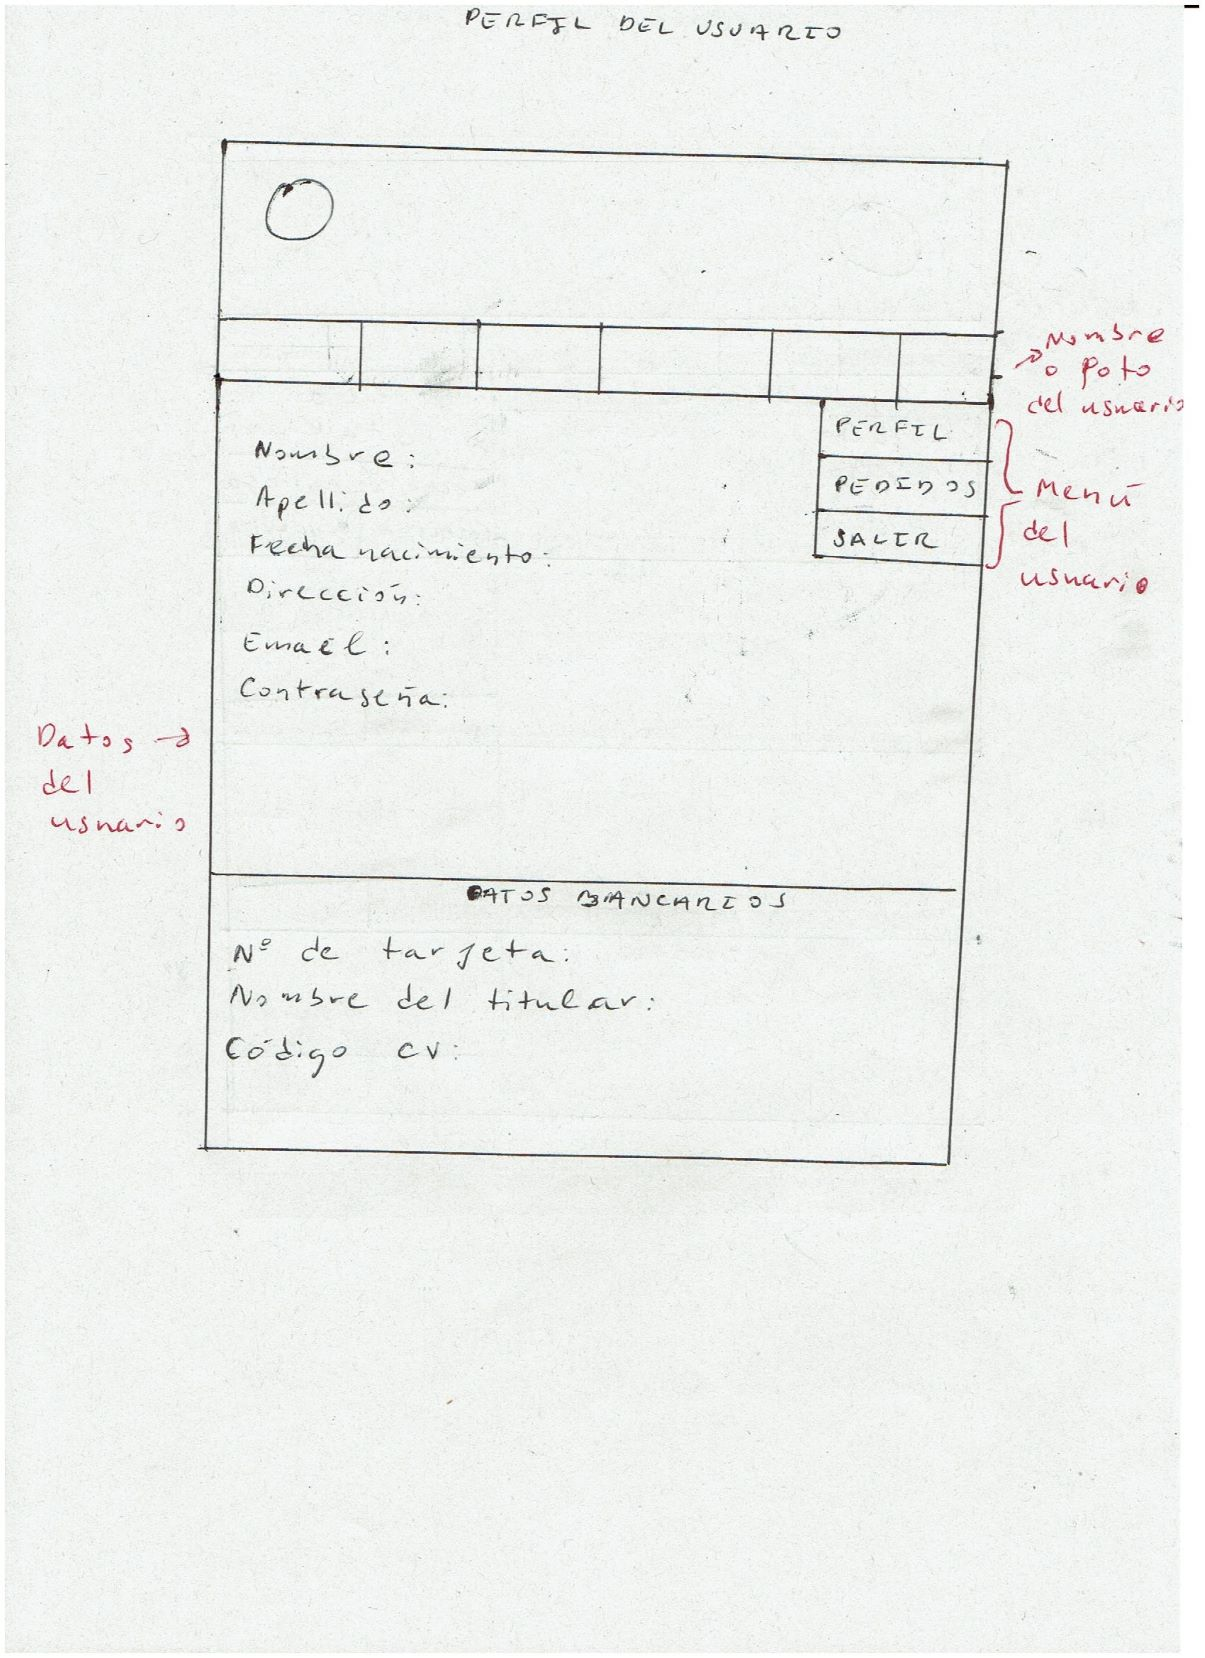 PERFIL DEL USUARIO
Nombre
o Foto
del usuario
PERFIL
PEDIDOS
SALIR
Menú
del
usuario
Nombre:
Apellido:
Fecha nacimiento:
Dirección:
Email:
Contraseña:
Datos
del
usuario
DATOS BANCARIOS
Nº de tarjeta:
Nombre del titular:
Código CV: